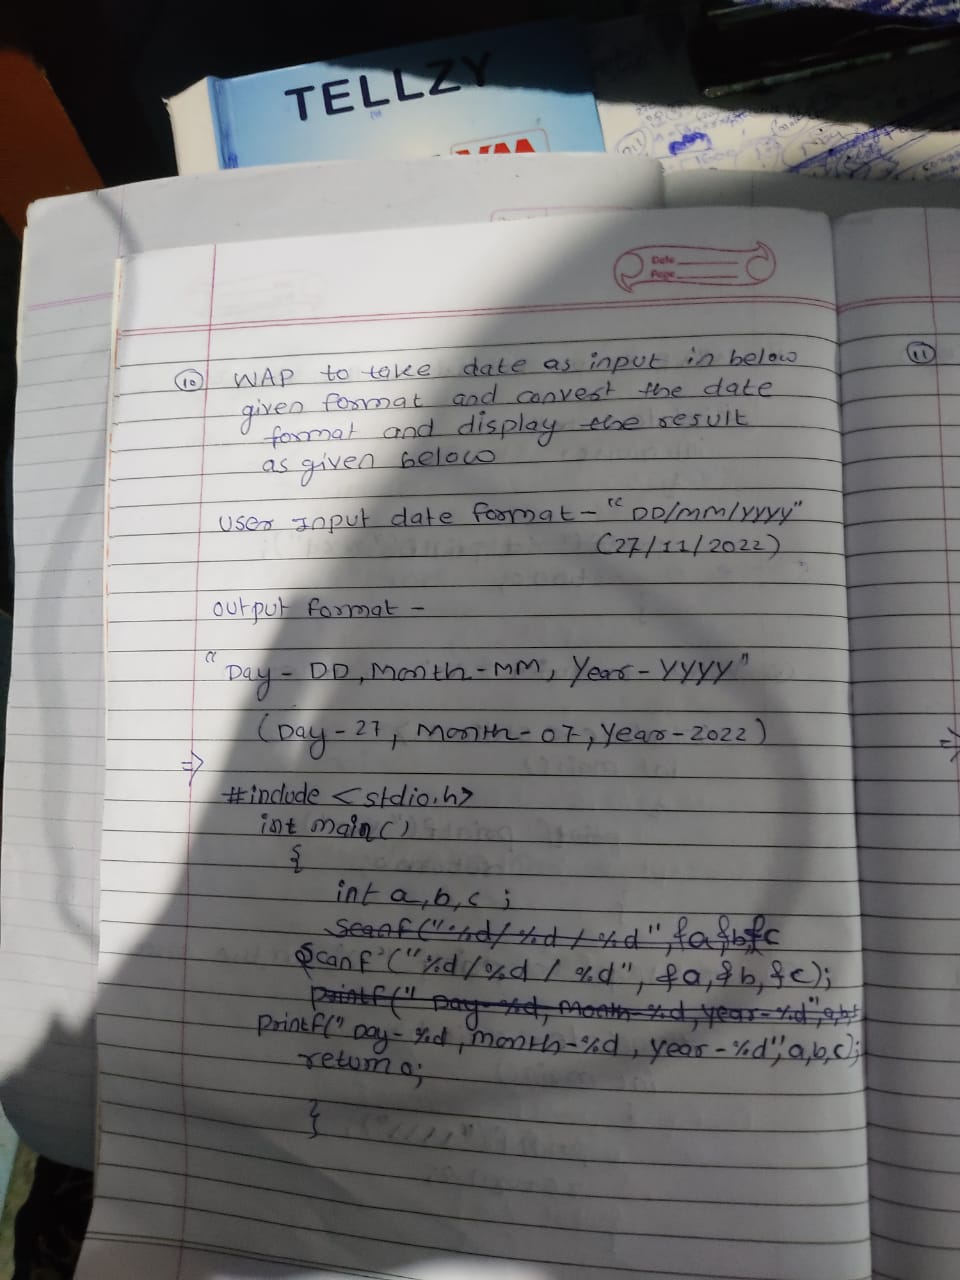 TELLZY
Date
Page
(10) WAP to take date as input in below
given format and convert the date
format and display the result
as given below
User Input date format - "DD/MM/YYYY"
(27/11/2022)
output format -
"Day - DD, Month - MM, Year - YYYY"
(Day - 27, Month - 07, Year - 2022)
=>
#include <stdio.h>
int main()
{
int a,b,c;
scanf("%d/%d/%d", &a,&b,&c
Scanf("%d/%d/%d", &a,&b,&c);
printf(" Day-%d, Month-%d, year-%d",a,b,
printf(" Day- %d, month-%d, year-%d",a,b,c);
return 0;
}
(11)
=>